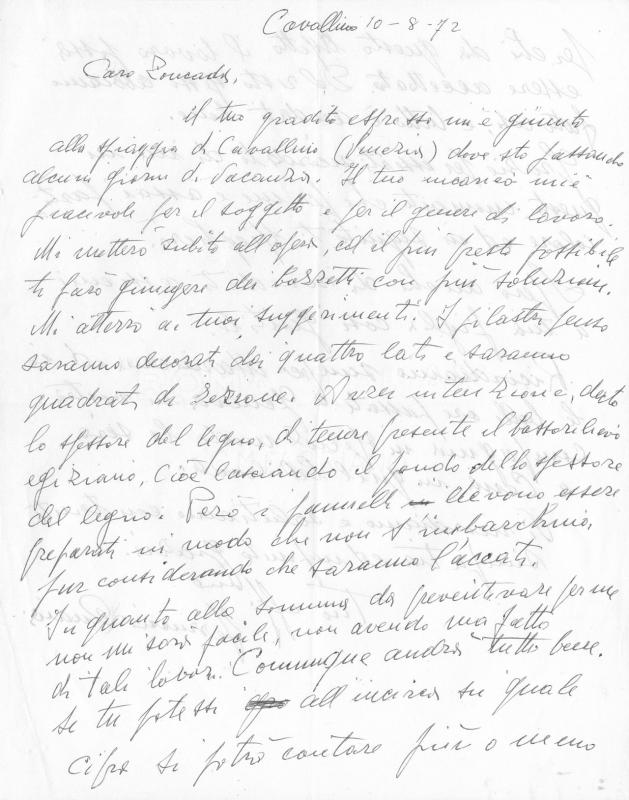 Cavallino 10-8-72
Caro Roncada,
il tuo gradito espresso mi è giunto
alla spiaggia di Cavallino (Venezia) dove sto passando
alcuni giorni di vacanza. Il tuo incarico mi è
piacevole per il soggetto e per il genere di lavoro.
Mi metterò subito all'opera, ed il più presto possibile
ti farò giungere dei bozzetti con più soluzioni.
Mi atterrò ai tuoi suggerimenti. I pilastri penso
saranno decorati dai quattro lati e saranno
quadrati di sezione. Avrei intenzione, dato
lo spessore del legno, di tenere presente il bassorilievo
egiziano, cioè lasciando il fondo dello spessore
del legno. Però i pannelli devono essere
preparati in modo che non s'imbarchino,
pur considerando che saranno laccati.
In quanto alla somma da preventivare per me
non mi sarà facile, non avendo mai fatto
di tali lavori. Comunque andrà tutto bene.
Se tu potessi all'incirca su quale
cifra si potrà contare più o meno